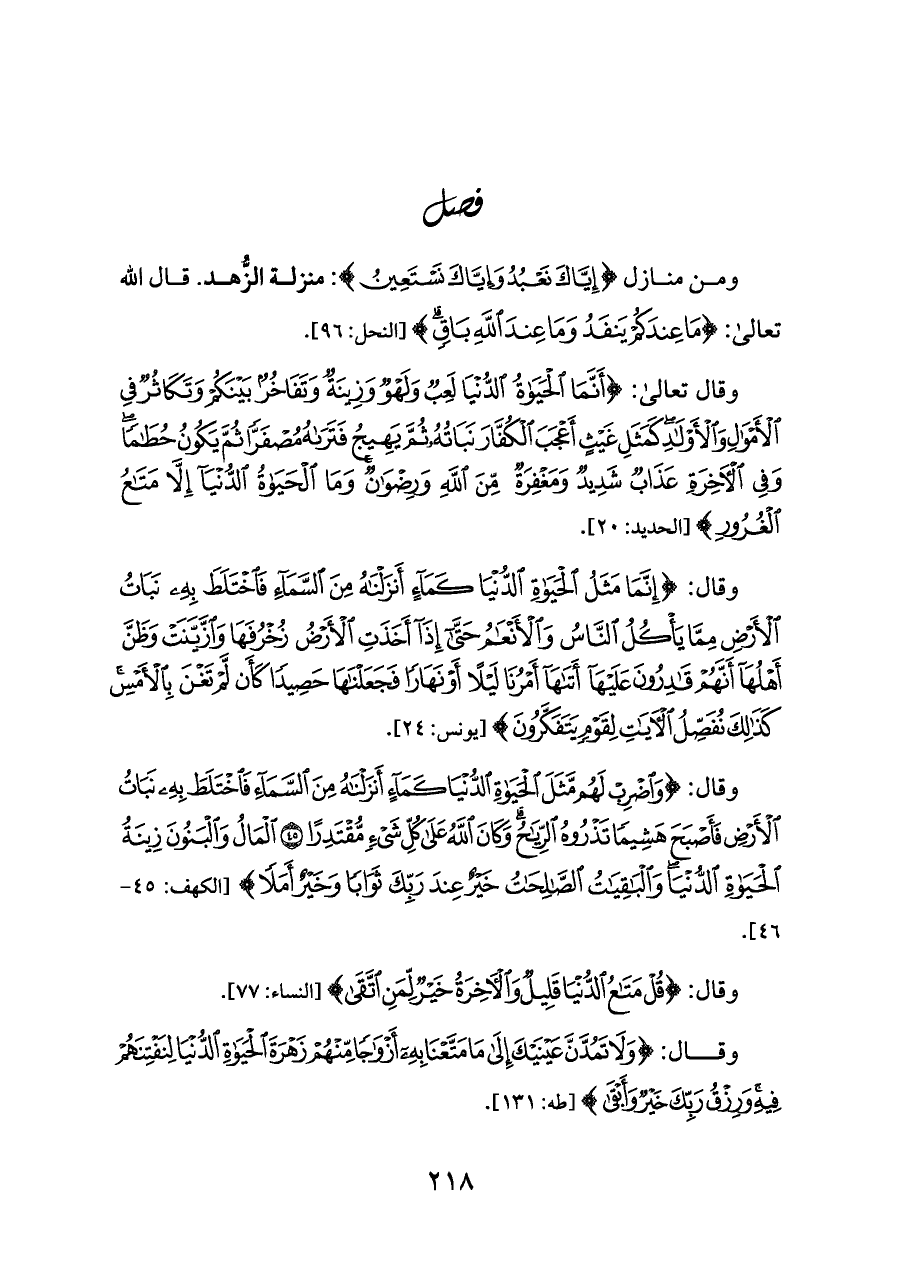 فصل
ومن منازل ﴿إِيَّاكَ نَعْبُدُ وَإِيَّاكَ نَسْتَعِينُ﴾: منزلة الزُّهد. قال الله
تعالىٰ: ﴿مَا عِندَكُمْ يَنفَدُ وَمَا عِندَ ٱللَّهِ بَاقٍۗ﴾ [النحل: ٩٦].
وقال تعالىٰ: ﴿أَنَّمَا ٱلْحَيَوٰةُ ٱلدُّنْيَا لَعِبٌ وَلَهْوٌ وَزِينَةٌ وَتَفَاخُرٌۢ بَيْنَكُمْ وَتَكَاثُرٌ فِي
ٱلْأَمْوَٰلِ وَٱلْأَوْلَٰدِۖ كَمَثَلِ غَيْثٍ أَعْجَبَ ٱلْكُفَّارَ نَبَاتُهُۥ ثُمَّ يَهِيجُ فَتَرَىٰهُ مُصْفَرًّا ثُمَّ يَكُونُ حُطَٰمًاۖ
وَفِي ٱلْأٓخِرَةِ عَذَابٌ شَدِيدٌ وَمَغْفِرَةٌ مِّنَ ٱللَّهِ وَرِضْوَٰنٌۚ وَمَا ٱلْحَيَوٰةُ ٱلدُّنْيَآ إِلَّا مَتَٰعُ
ٱلْغُرُورِ﴾ [الحديد: ٢٠].
وقال: ﴿إِنَّمَا مَثَلُ ٱلْحَيَوٰةِ ٱلدُّنْيَا كَمَآءٍ أَنزَلْنَٰهُ مِنَ ٱلسَّمَآءِ فَٱخْتَلَطَ بِهِۦ نَبَاتُ
ٱلْأَرْضِ مِمَّا يَأْكُلُ ٱلنَّاسُ وَٱلْأَنْعَٰمُ حَتَّىٰٓ إِذَآ أَخَذَتِ ٱلْأَرْضُ زُخْرُفَهَا وَٱزَّيَّنَتْ وَظَنَّ
أَهْلُهَآ أَنَّهُمْ قَٰدِرُونَ عَلَيْهَآ أَتَىٰهَآ أَمْرُنَا لَيْلًا أَوْ نَهَارًا فَجَعَلْنَٰهَا حَصِيدًا كَأَن لَّمْ تَغْنَ بِٱلْأَمْسِۚ
كَذَٰلِكَ نُفَصِّلُ ٱلْأٓيَٰتِ لِقَوْمٍ يَتَفَكَّرُونَ﴾ [يونس: ٢٤].
وقال: ﴿وَٱضْرِبْ لَهُم مَّثَلَ ٱلْحَيَوٰةِ ٱلدُّنْيَا كَمَآءٍ أَنزَلْنَٰهُ مِنَ ٱلسَّمَآءِ فَٱخْتَلَطَ بِهِۦ نَبَاتُ
ٱلْأَرْضِ فَأَصْبَحَ هَشِيمًا تَذْرُوهُ ٱلرِّيَٰحُۗ وَكَانَ ٱللَّهُ عَلَىٰ كُلِّ شَيْءٍ مُّقْتَدِرًا ٤٥ ٱلْمَالُ وَٱلْبَنُونَ زِينَةُ
ٱلْحَيَوٰةِ ٱلدُّنْيَاۖ وَٱلْبَٰقِيَٰتُ ٱلصَّٰلِحَٰتُ خَيْرٌ عِندَ رَبِّكَ ثَوَابًا وَخَيْرٌ أَمَلًا﴾ [الكهف: ٤٥-
٤٦].
وقال: ﴿قُلْ مَتَٰعُ ٱلدُّنْيَا قَلِيلٌ وَٱلْأٓخِرَةُ خَيْرٌ لِّمَنِ ٱتَّقَىٰ﴾ [النساء: ٧٧].
وقال: ﴿وَلَا تَمُدَّنَّ عَيْنَيْكَ إِلَىٰ مَا مَتَّعْنَا بِهِۦٓ أَزْوَٰجًا مِّنْهُمْ زَهْرَةَ ٱلْحَيَوٰةِ ٱلدُّنْيَا لِنَفْتِنَهُمْ
فِيهِۚ وَرِزْقُ رَبِّكَ خَيْرٌ وَأَبْقَىٰ﴾ [طه: ١٣١].
٢١٨